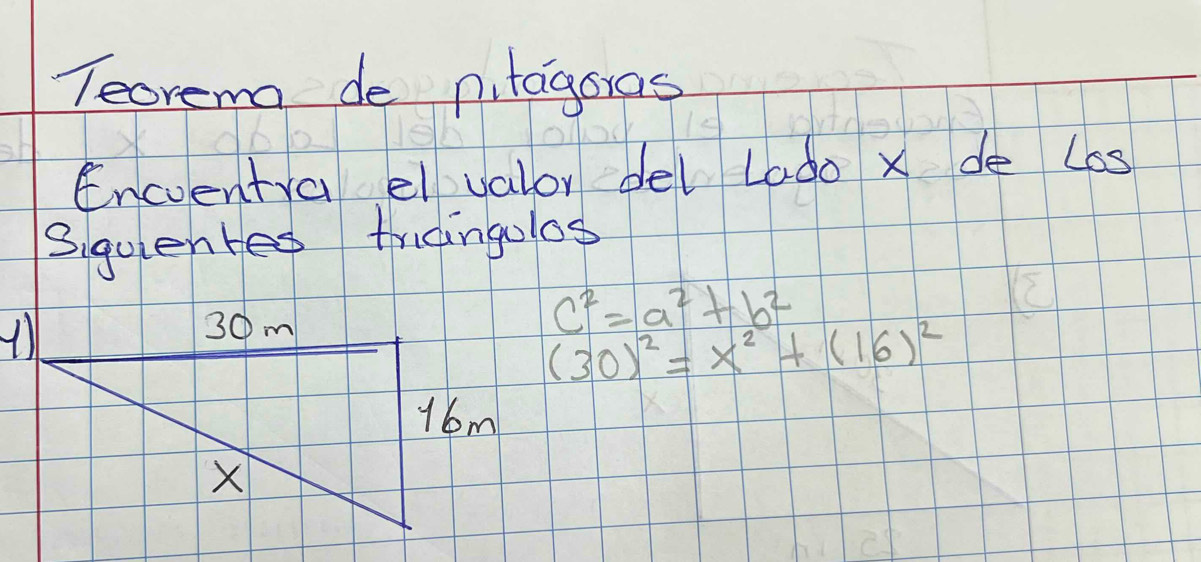 Teorema de pitágoras
Encuentra el valor del Lado x de Los
Siguientes triángulos
1)
30m
C² = a² + b²
(30)² = x² + (16)²
16m
X